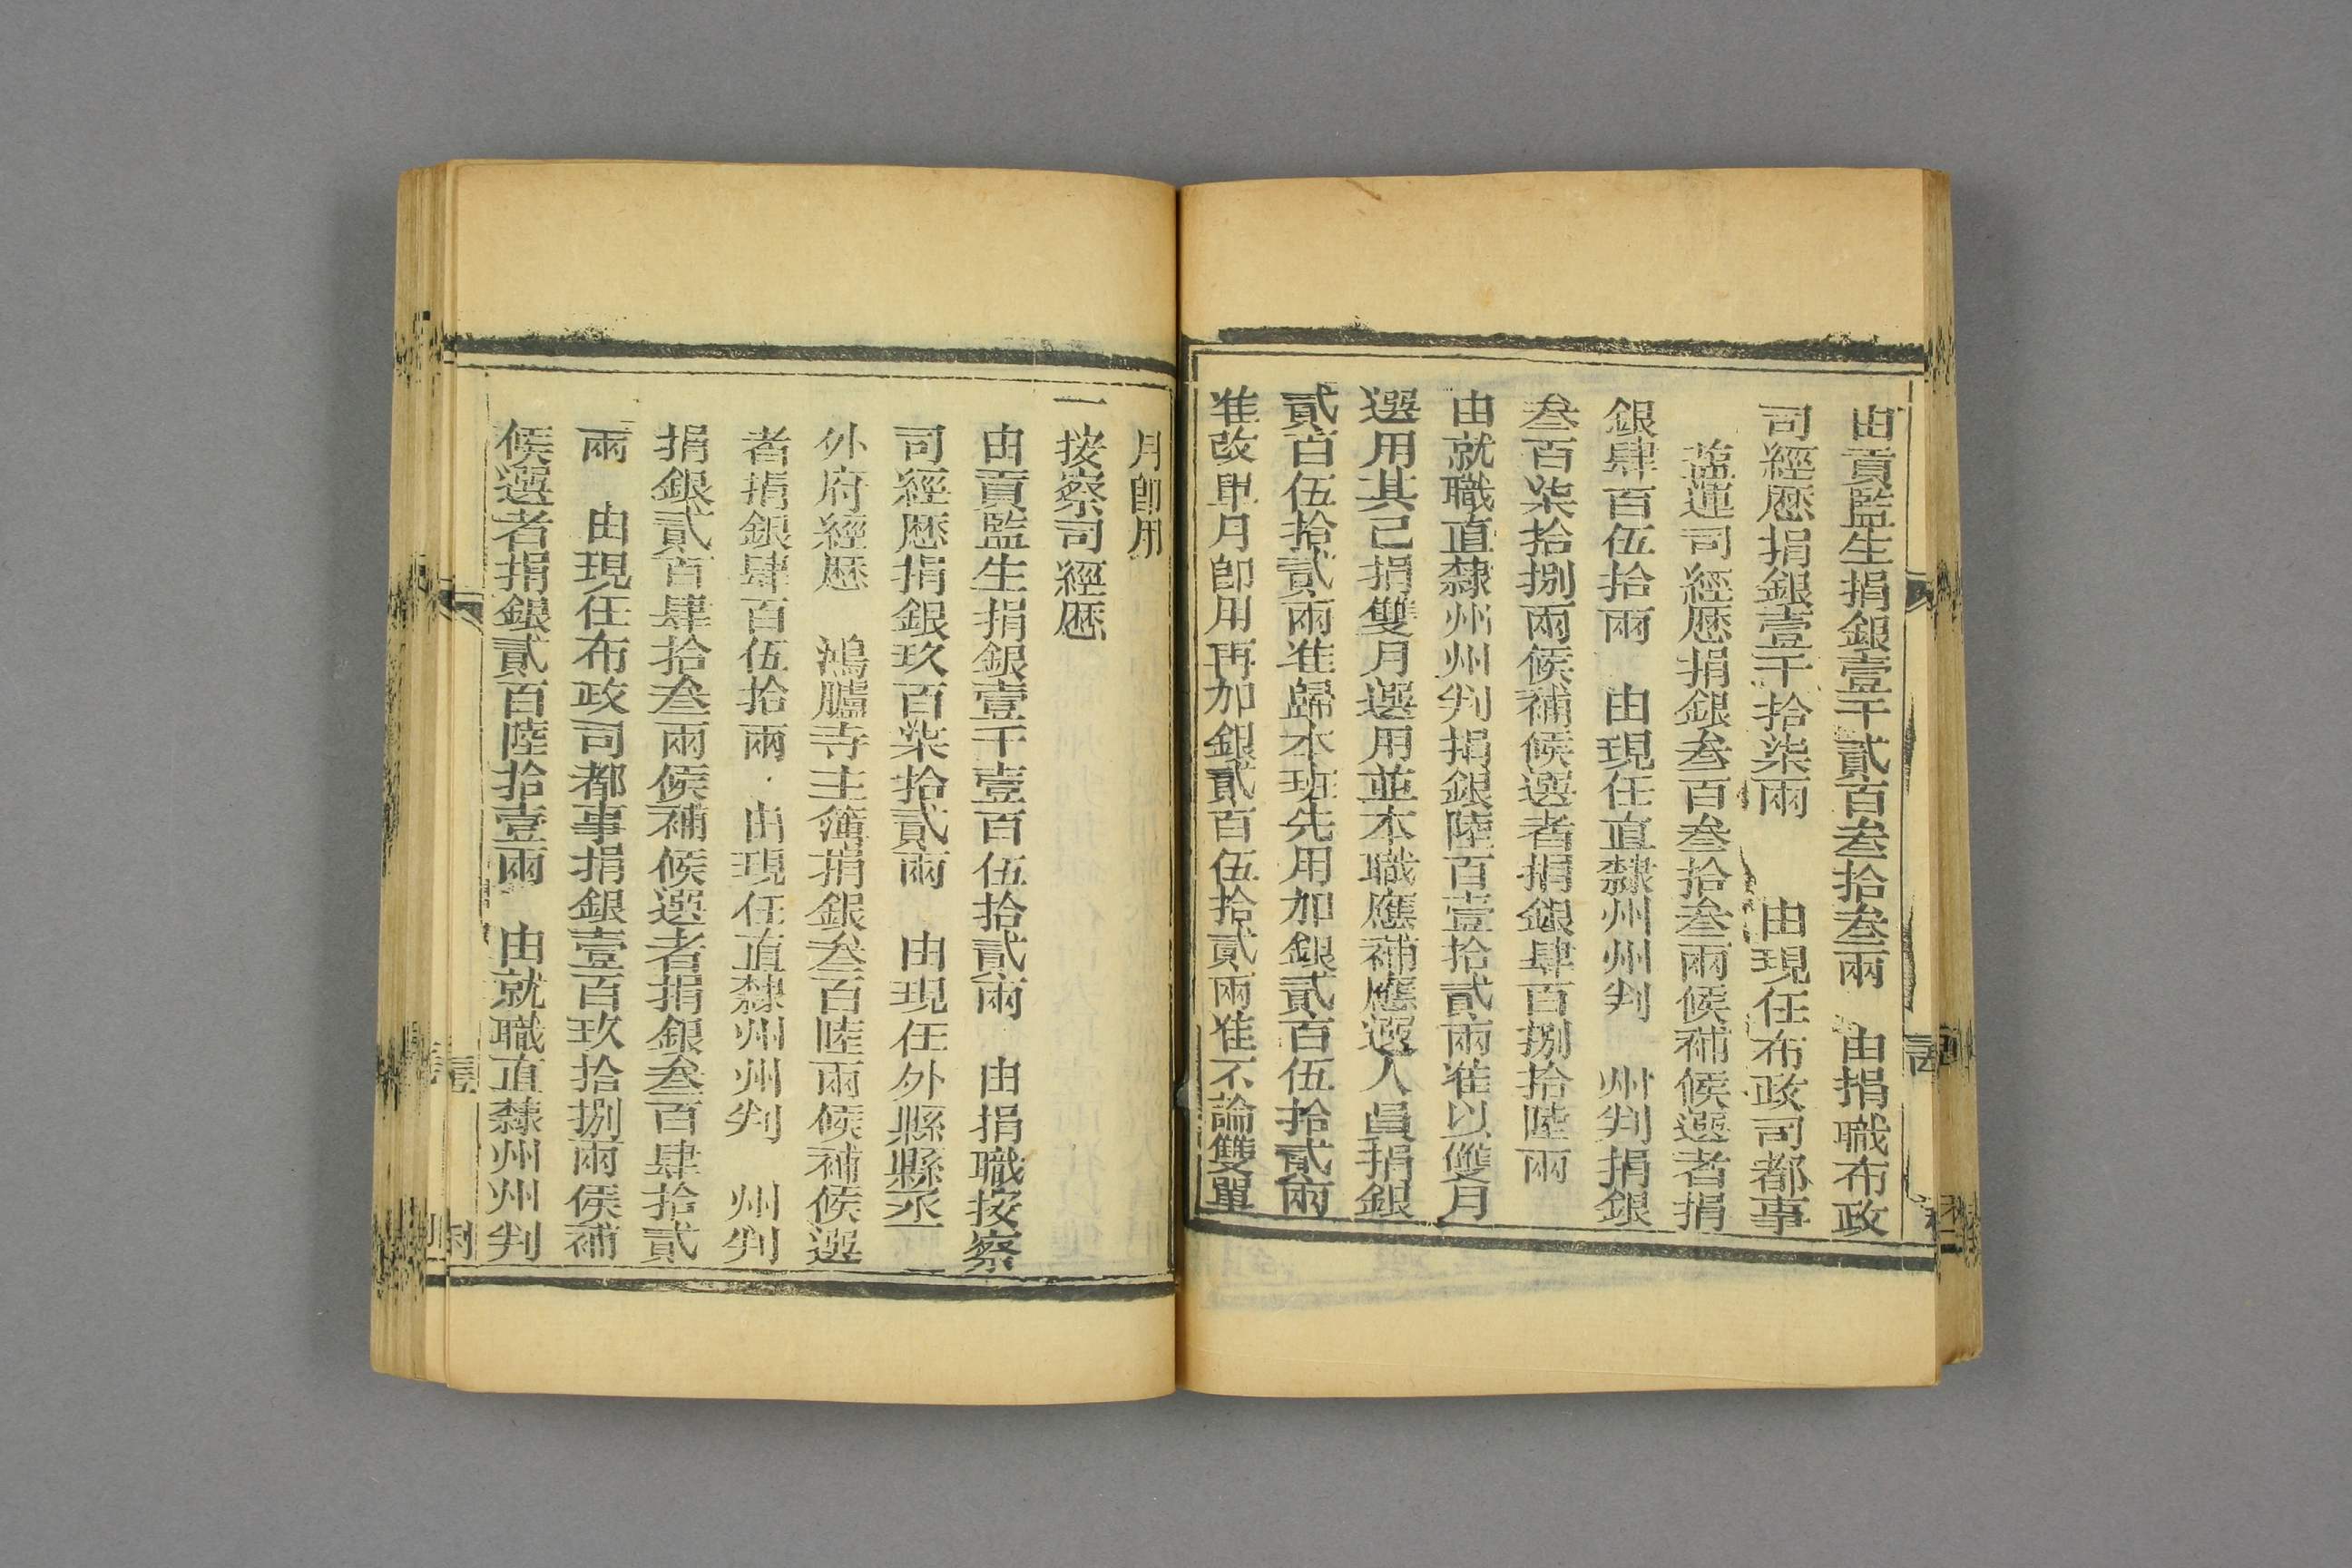 由貢監生捐銀壹千貳百叁拾叁兩　由捐職布政
司經歷捐銀壹千拾柒兩　由現任布政司都事
鹽運司經歷捐銀叁百叁拾叁兩候補候選者捐
銀肆百伍拾兩　由現任直隸州州判　州判捐銀
叁百柒拾捌兩候補候選者捐銀肆百捌拾陸兩
由就職直隸州州判捐銀陸百壹拾貳兩准以雙月
選用其已捐雙月選用並本職應補應選人員捐銀
貳百伍拾貳兩准歸本班先用加銀貳百伍拾貳兩
准改單月即用再加銀貳百伍拾貳兩准不論雙單
月即用
一按察司經歷
由貢監生捐銀壹千壹百伍拾貳兩　由捐職按察
司經歷捐銀玖百柒拾貳兩　由現任外縣縣丞
外府經歷　鴻臚寺主簿捐銀叁百陸兩候補候選
者捐銀肆百伍拾兩　由現任直隸州州判　州判
捐銀貳百肆拾叁兩候補候選者捐銀叁百肆拾貳
兩　由現任布政司都事捐銀壹百玖拾捌兩候補
候選者捐銀貳百陸拾壹兩　由就職直隸州州判